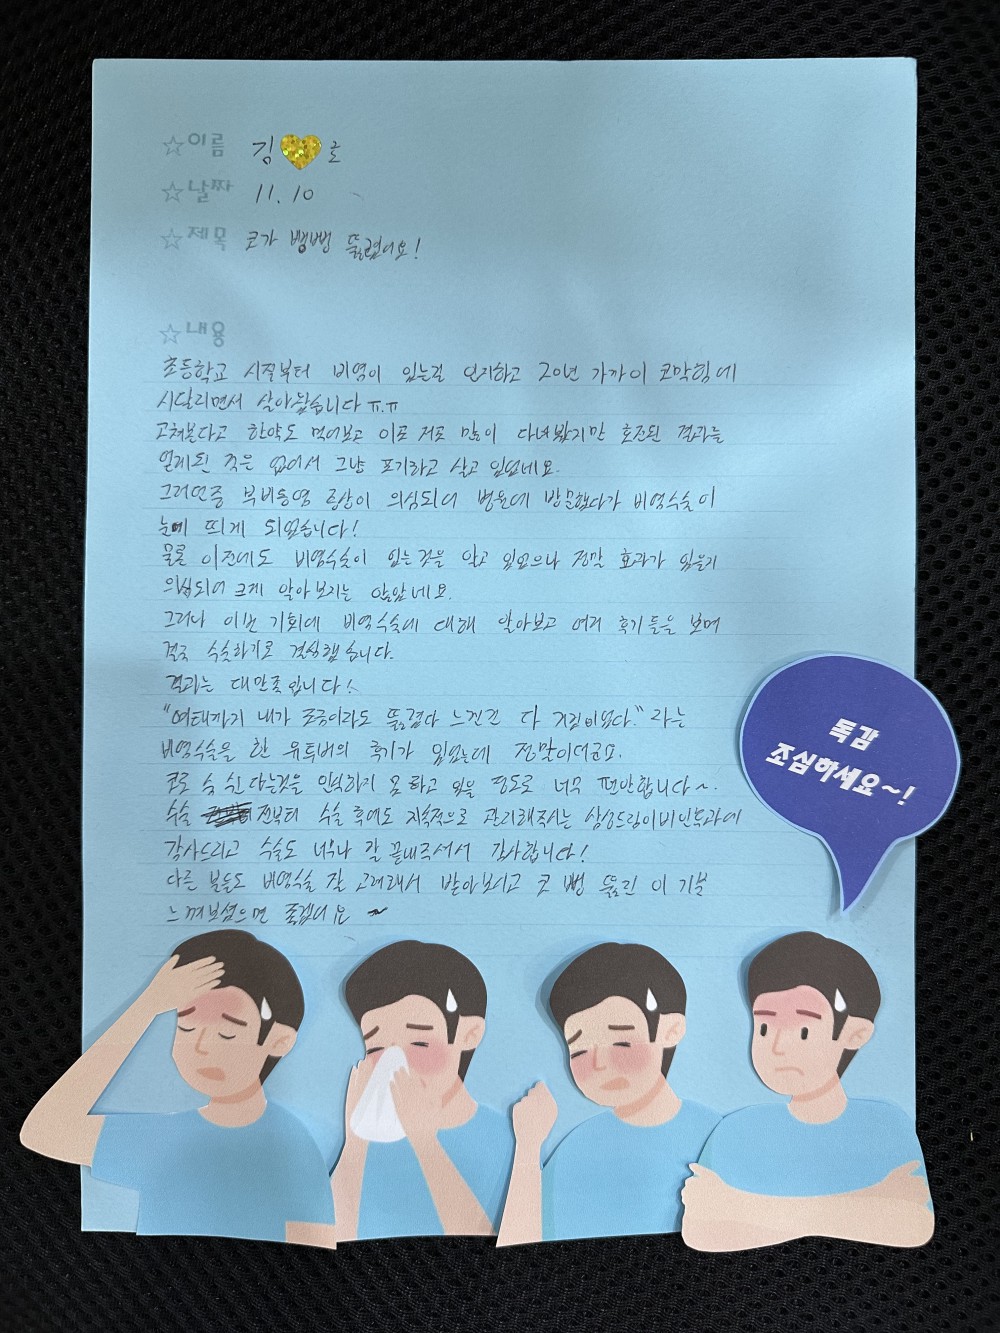 ☆이름 김 로
☆날짜 11.10
☆제목 코가 뻥뻥 뚫렸어요!
☆내용
초등학교 시절부터 비염이 있는걸 인지하고 20년 가까이 코막힘에
시달리면서 살아왔습니다 ㅠ.ㅠ
고쳐본다고 한약도 먹어보고 이곳 저곳 많이 다녀봤지만 호전된 결과를
얻게된 적은 없어서 그냥 포기하고 살고 있었네요.
그러던중 부비동염 증상이 의심되어 병원에 방문했다가 비염수술이
눈에 띄게 되었습니다!
물론 이전에도 비염수술이 있는것을 알고 있었으나 정말 효과가 있을지
의심되어 크게 알아보지는 않았네요.
그러나 이번 기회에 비염수술에 대해 알아보고 여러 후기들을 보며
결국 수술하기로 결심했습니다.
결과는 대만족입니다!
"여태까지 내가 조금이라도 뚫렸다 느낀건 다 거짓이었다." 라는
비염수술을 한 유튜버의 후기가 있었는데 정말이더군요.
코로 숨 쉰다는것을 인식하지 못 하고 있을 정도로 너무 편안합니다~.
수술 전부터 수술 후에도 지속적으로 관리해주시는 삼성드림이비인후과에
감사드리고 수술도 너무나 잘 끝내주셔서 감사합니다!
다른 분들도 비염수술 잘 고려해서 받아보시고 코 뻥 뚫린 이 기분
느껴보셨으면 좋겠어요 ~
독감
조심하세요~!